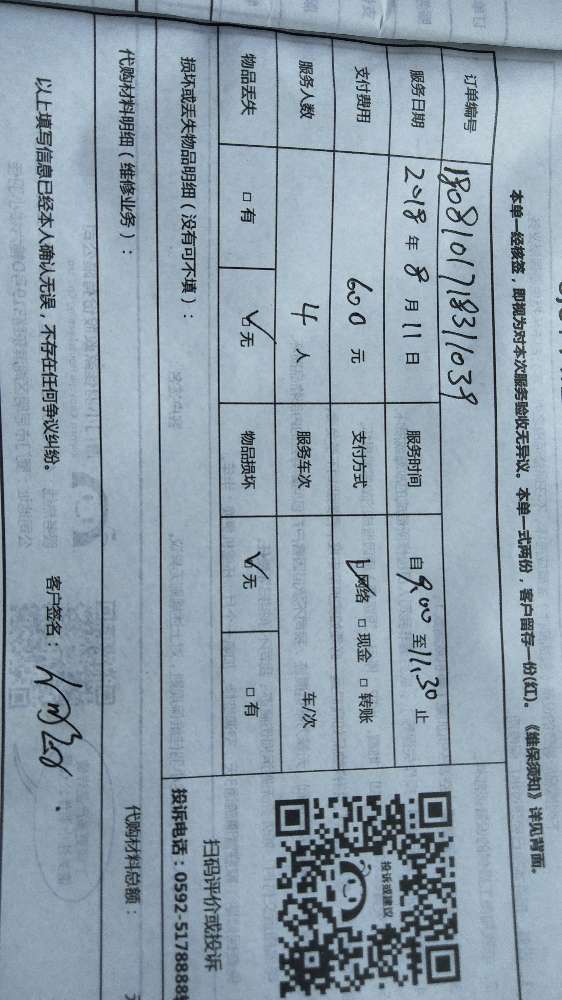 本单一经核签，即视为对本次服务验收无异议。本单一式两份，客户留存一份(红)。《维保须知》详见背面。
订单编号 1808101718311039
服务日期 2018 年 8 月 11 日 服务时间 自 9.00 至 11.30 止
支付费用 600 元 支付方式 ☑网络 □现金 □转账
服务人数 4 人 服务车次 车/次
物品丢失 □有 ☑无 物品损坏 ☑无 □有
损坏或丢失物品明细（没有可不填）：
代购材料明细（维修业务）： 代购材料总额：
以上填写信息已经本人确认无误，不存在任何争议纠纷。 客户签名：
投诉或建议
扫码评价或投诉
投诉电话：0592-5178888